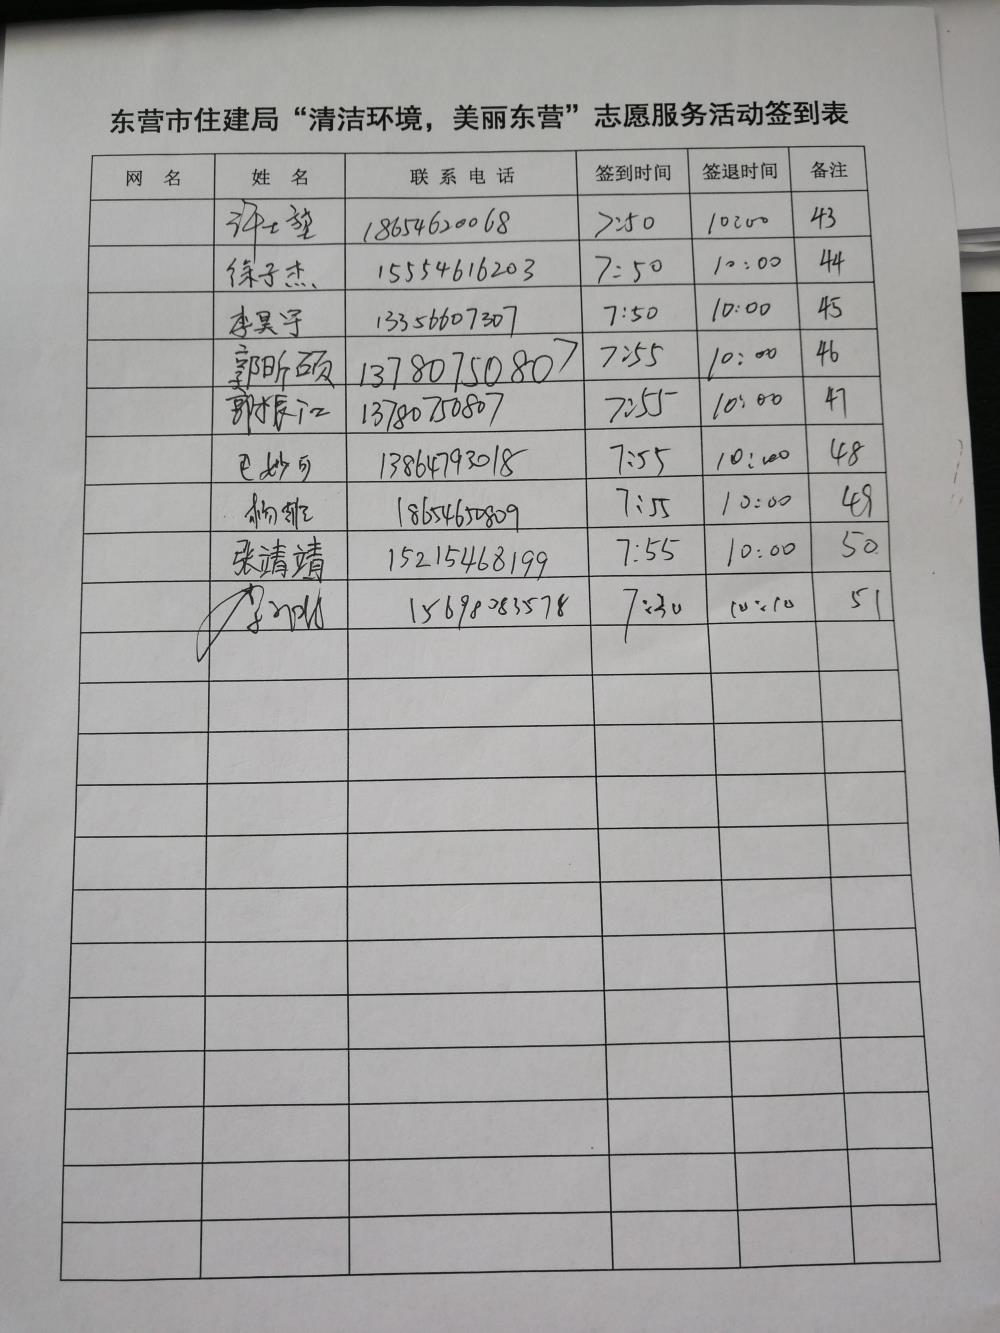 东营市住建局“清洁环境，美丽东营”志愿服务活动签到表
网 名 姓 名 联系电话 签到时间 签退时间 备注
许士 18654620068 7:50 10:00 43
徐子杰 15554616203 7:50 10:00 44
李昊宇 13356607307 7:50 10:00 45
郭昕硕 13780750807 7:55 10:00 46
郭振江 13780750807 7:55 10:00 47
妙可 13864793018 7:55 10:00 48
杨 18654650809 7:55 10:00 49
张靖靖 15215468199 7:55 10:00 50
李 15698083578 7:30 10:10 51